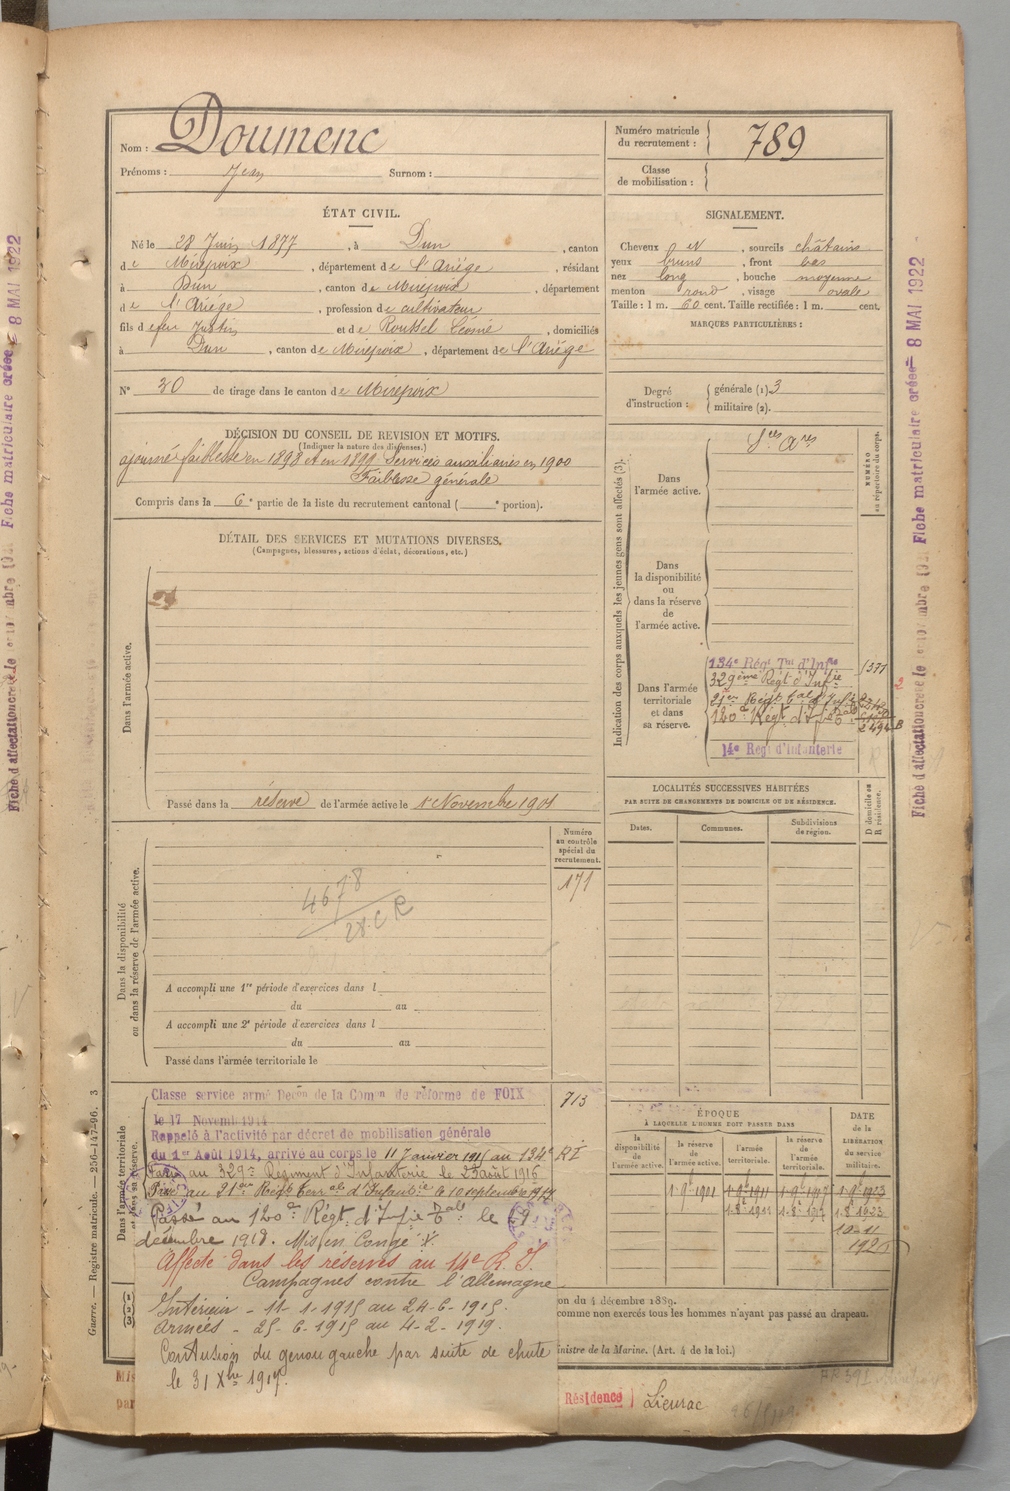 Nom : Doumenc
Prénoms : Jean Surnom :
Numéro matricule du recrutement : 789
Classe de mobilisation :
ÉTAT CIVIL.
Né le 28 Juin 1877, à Dun, canton
de Mirepoix, département de l'Ariége, résidant
à Dun, canton de Mirepoix, département
de l'Ariége, profession de cultivateur
fils de feu Justin et de Roussel Léonie, domiciliés
à Dun, canton de Mirepoix, département de l'Ariége
N° 30 de tirage dans le canton de Mirepoix
SIGNALEMENT.
Cheveux et, sourcils châtains
yeux bruns, front bas
nez long, bouche moyenne
menton rond, visage ovale
Taille : 1 m. 60 cent. Taille rectifiée : 1 m. cent.
MARQUES PARTICULIÈRES :
Degré d'instruction : générale (1) 3
militaire (2).
DÉCISION DU CONSEIL DE REVISION ET MOTIFS.
(Indiquer la nature des dispenses.)
ajourné faiblesse en 1898 et en 1899 Services auxiliaires en 1900
Faiblesse générale
Compris dans la 6e partie de la liste du recrutement cantonal ( e portion).
DÉTAIL DES SERVICES ET MUTATIONS DIVERSES.
(Campagnes, blessures, actions d'éclat, décorations, etc.)
Dans l'armée active.
Passé dans la réserve de l'armée active le 1er Novembre 1901
Indication des corps auxquels les jeunes gens sont affectés (3).
NUMÉRO au répertoire du corps.
Dans l'armée active.
Sces Ares
Dans la disponibilité ou dans la réserve de l'armée active.
Dans l'armée territoriale et dans sa réserve.
134e Régt Tal d'Infie
1377
329ème Régt d'Infie
21er Régt Cal d'Infie
120e Régt d'Infie
14e Régt d'Infanterie
LOCALITÉS SUCCESSIVES HABITÉES
PAR SUITE DE CHANGEMENTS DE DOMICILE OU DE RÉSIDENCE.
Dates. Communes. Subdivisions de région.
D domicile ou R résidence.
Numéro au contrôle spécial du recrutement.
171
Dans la disponibilité ou dans la réserve de l'armée active.
4678
28.C R
A accompli une 1re période d'exercices dans l
du au
A accompli une 2e période d'exercices dans l
du au
Passé dans l'armée territoriale le
Dans l'armée territoriale et dans sa réserve.
Classe service armé Decon de la Comon de réforme de FOIX
713
le 17 Novemb 1914
Rappelé à l'activité par décret de mobilisation générale
du 1er Août 1914, arrivé au corps le 11 Janvier 1915 au 134e RI
Passé au 329e Régiment d'Infanterie le 23 août 1916
Passé au 21er Régt d'Infanterie le 10 septembre 1918
Passé au 120e Régt d'Infie le 9
décembre 1918. Mis en Congé
Affecté dans les réserves au 14e R. I.
Campagnes contre l'Allemagne
Intérieur - 11-1-1915 au 24-6-1915.
Armées - 25-6-1915 au 4-2-1919.
Contusion du genou gauche par suite de chute
le 31 Xbre 1917.
ÉPOQUE
À LAQUELLE L'HOMME DOIT PASSER DANS
la disponibilité de l'armée active.
la réserve de l'armée active.
l'armée territoriale.
la réserve de l'armée territoriale.
DATE DE LA LIBÉRATION du service militaire.
1-9bre 1901 1-9bre 1911 1-9bre 1917 1-9bre 1923
10-11 1926
on du 4 décembre 1889.
comme non exercés tous les hommes n'ayant pas passé au drapeau.
inistre de la Marine. (Art. 4 de la loi.)
Résidence Lieurac
Guerre. — Registre matricule. — 256-147-96. 3
Fiche matriculaire créée 8 MAI 1922
Fiche d'affectation créée le
Fiche matriculaire créée 8 MAI 1922
Fiche d'affectation créée le